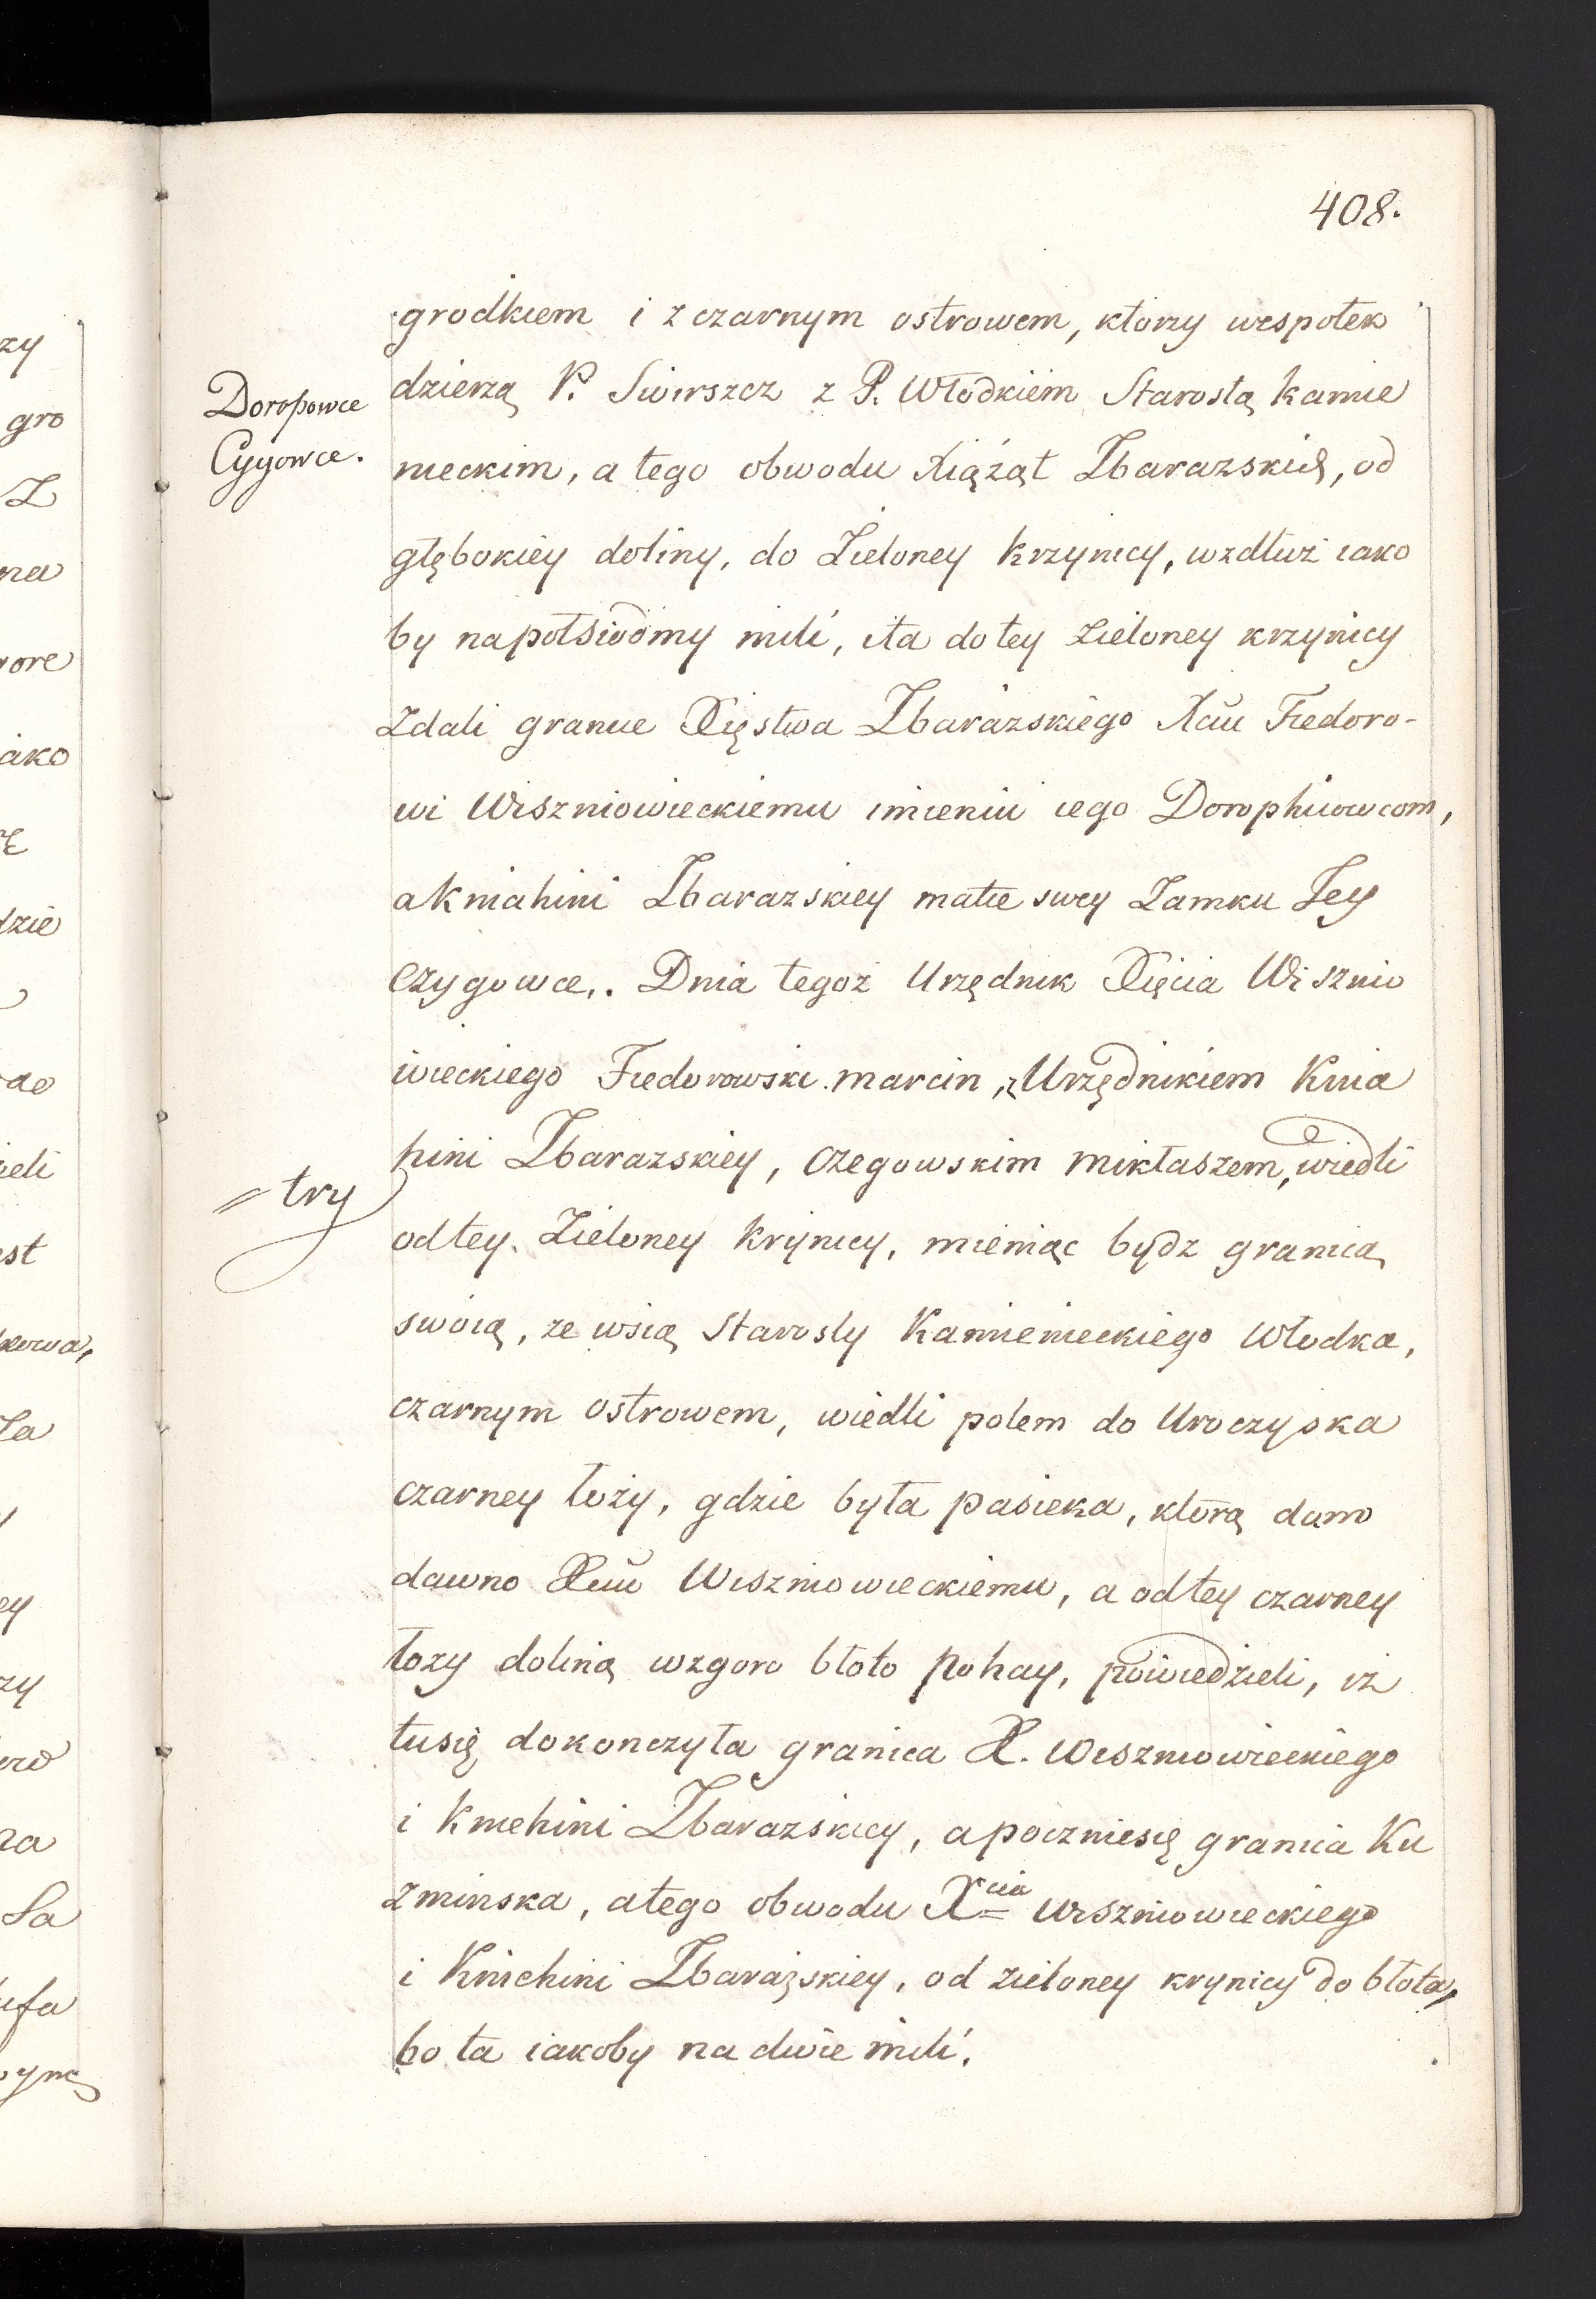 408.
grodkiem i z czarnym ostrowem, ktorzy wespołek
dzierzą P. Swirszcz z P. Włodkiem Starostą kamie
nieckim, a tego obwodu Xiążąt Zbarazskich, od
głębokiey doliny, do Zieloney krzynicy, wzdłuż iako
by napołsiodmy mili, ita dotey zieloney krzynicy
zdali granice Xięstwa Zbarazskiego Xciu Fiedoro-
wi Wiszniowieckiemu imieniu iego Dorophiiowcom,
a Kniahini Zbarazskiey matce swey Zamku Jey
Czygowce,. Dnia tegoż Urzędnik Xięcia Wisznio
wieckiego Fiedorowski marcin, z Urzędnikiem Knia
hini Zbarazskiey, Czegowskim mikłaszem, wiedli
odtey Zieloney Krynicy, mieniąc bydz granicą
swoią, ze wsią Starosty Kamienieckiego Włodka,
czarnym ostrowem, wiedli polem do Uroczyska
czarney łozy, gdzie była pasieka, ktorą dano
dawno Xciu Wiszniowieckiemu, a odtey czarney
łozy doliną wzgoro błoto Pohay, powiedzieli, iż
tusię dokonczyła granica X. Wiszniowieckiego
i Kniehini Zbarazskiey, apoczniesię granica Ku
zminska, atego obwodu Xcia Wiszniowieckiego
i Kniehini Zbarazskiey, od zieloney krynicy do błota,
bo ta iakoby na dwie mili.
Doropowce
Cygowce.
= try